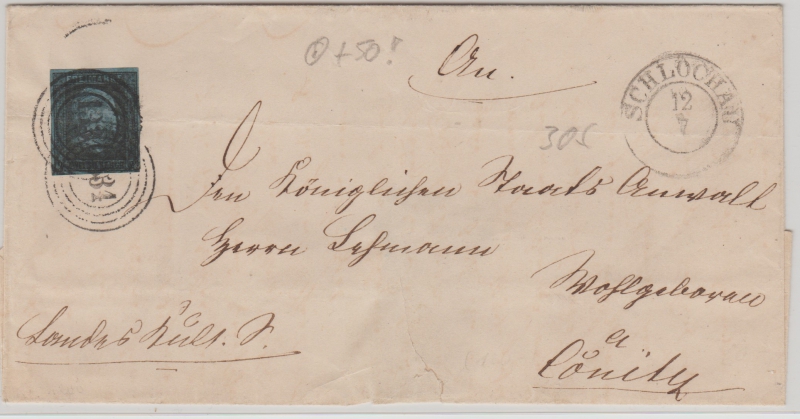 FREIMARKE
31
⊙ + 50!
An.
SCHLOCHAU
12
7
305
Den Königlichen Staats Anwalt
Herrn Lehmann
Wohlgeboren
Landes Kult. S.
a
Cönitz